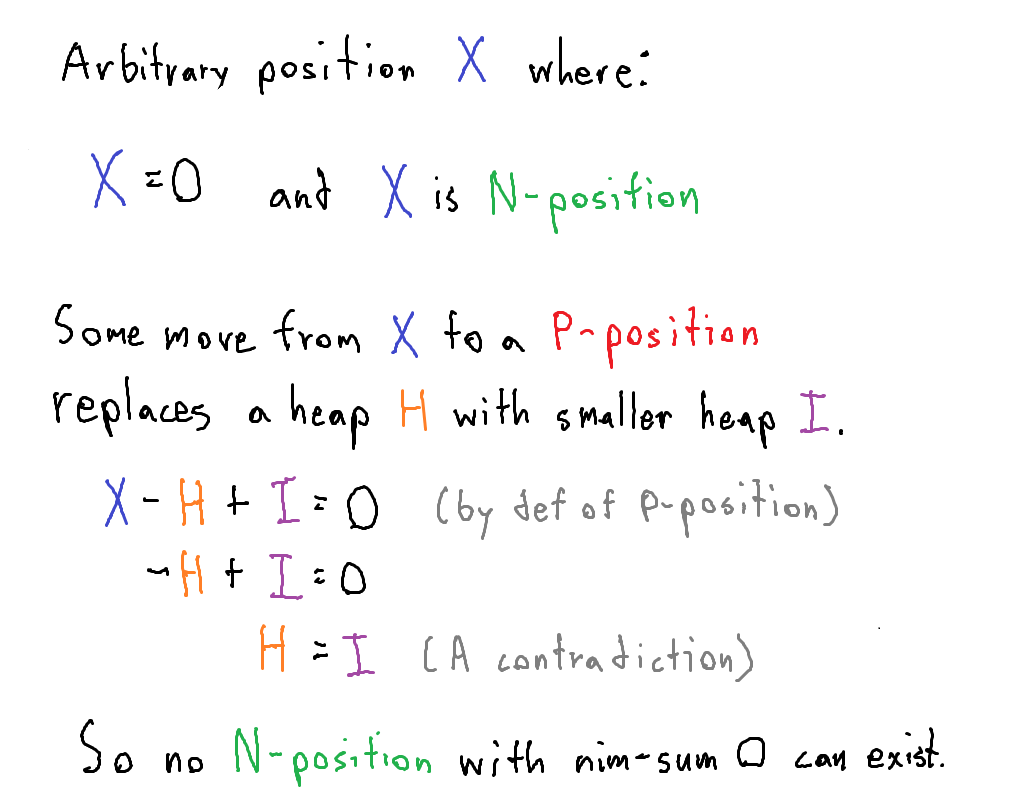 Arbitrary position X where:
X = 0 and X is N-position
Some move from X to a P-position
replaces a heap H with smaller heap I.
X - H + I = 0 (by def of P-position)
- H + I = 0
H = I (A contradiction)
So no N-position with nim-sum 0 can exist.